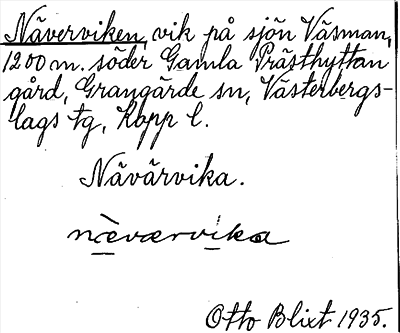 Näverviken, vik på sjön Väsman,
1200 m. söder Gamla Prästhyttan
gård, Grangärde sn, Västerbergs-
lags tg, Kopp l.
Nävärvika.
nὲværvika
Otto Blixt 1935.